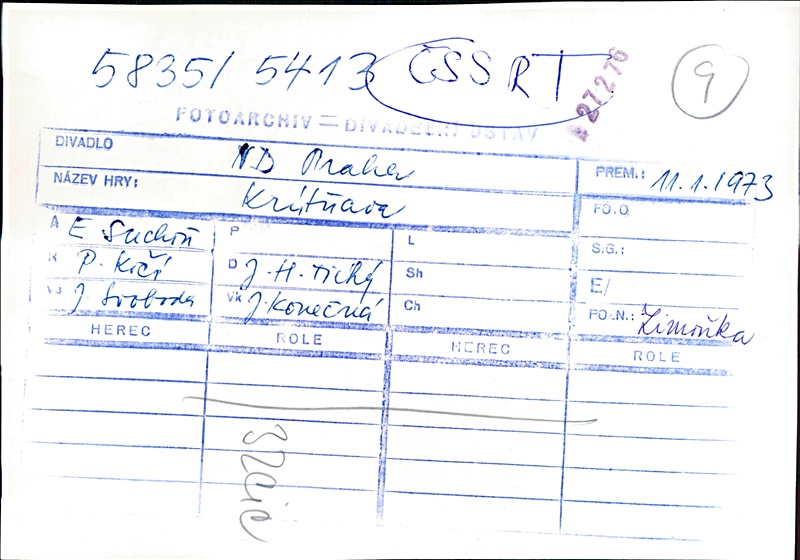 5835/5413 ČSSRT 9
427276
FOTOARCHIV — DIVADELNÍ ÚSTAV
DIVADLO ND Praha PREM.: 11.1.1973
NÁZEV HRY: Krútňava FO.O
A E Suchoň P L S.G.:
R P. Kočí D J.H.Tichý Sh E/
J. Svoboda VK J.Konečná Ch FO.N.: Zimoňka
HEREC ROLE HEREC ROLE